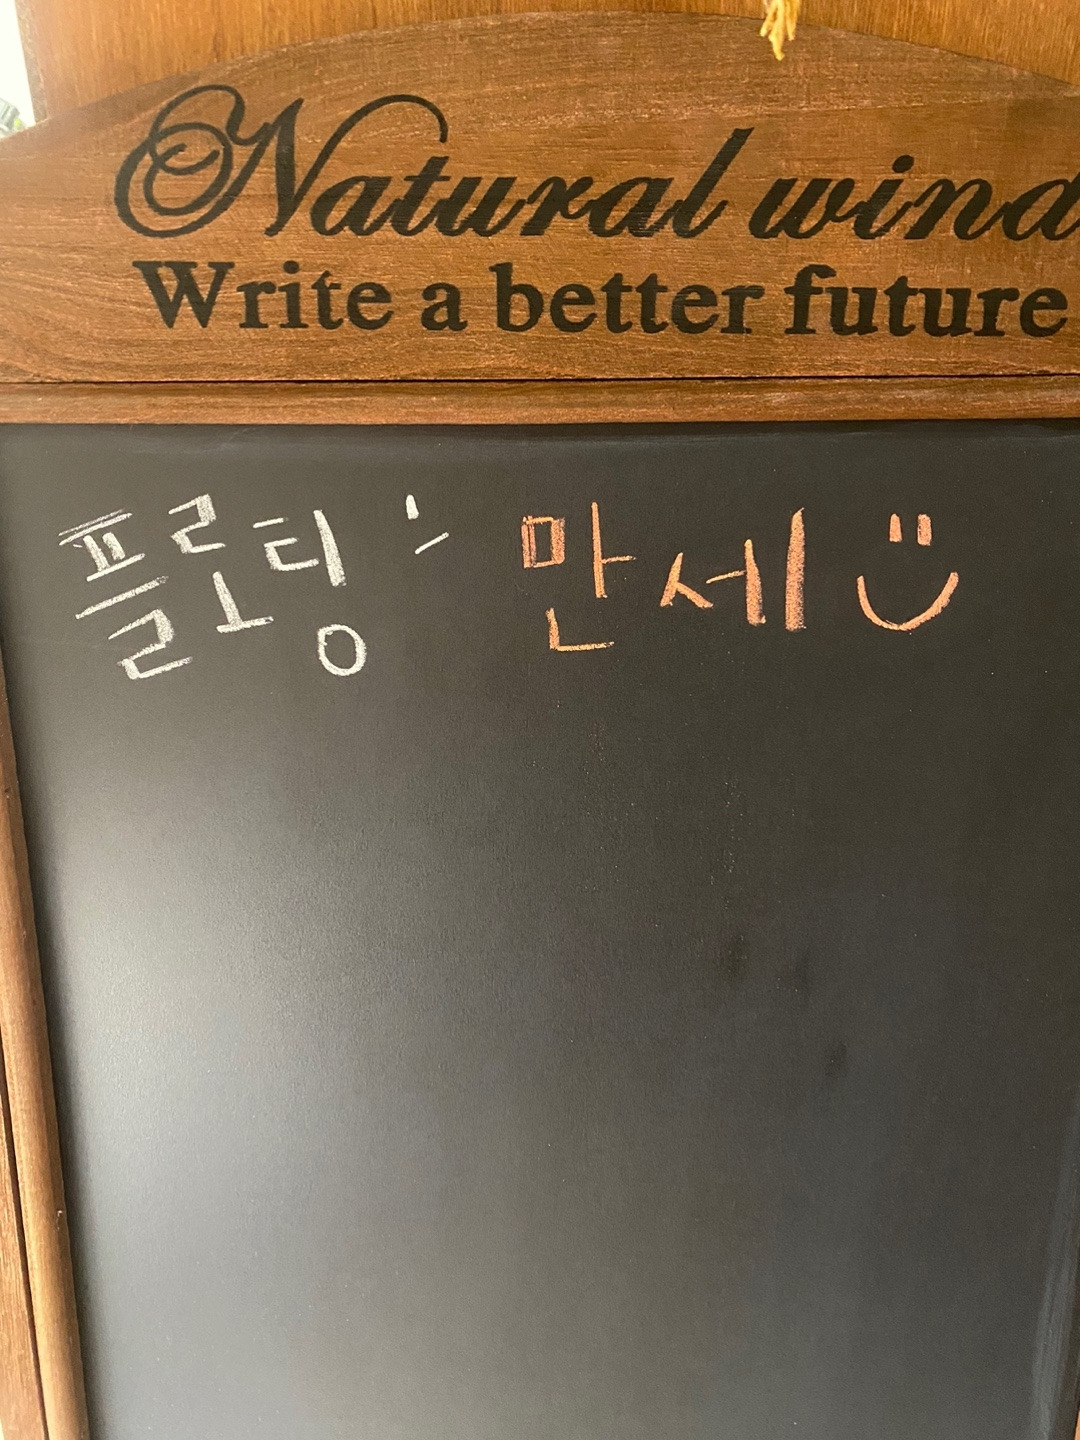 Natural wind
Write a better future
플로팅 만세